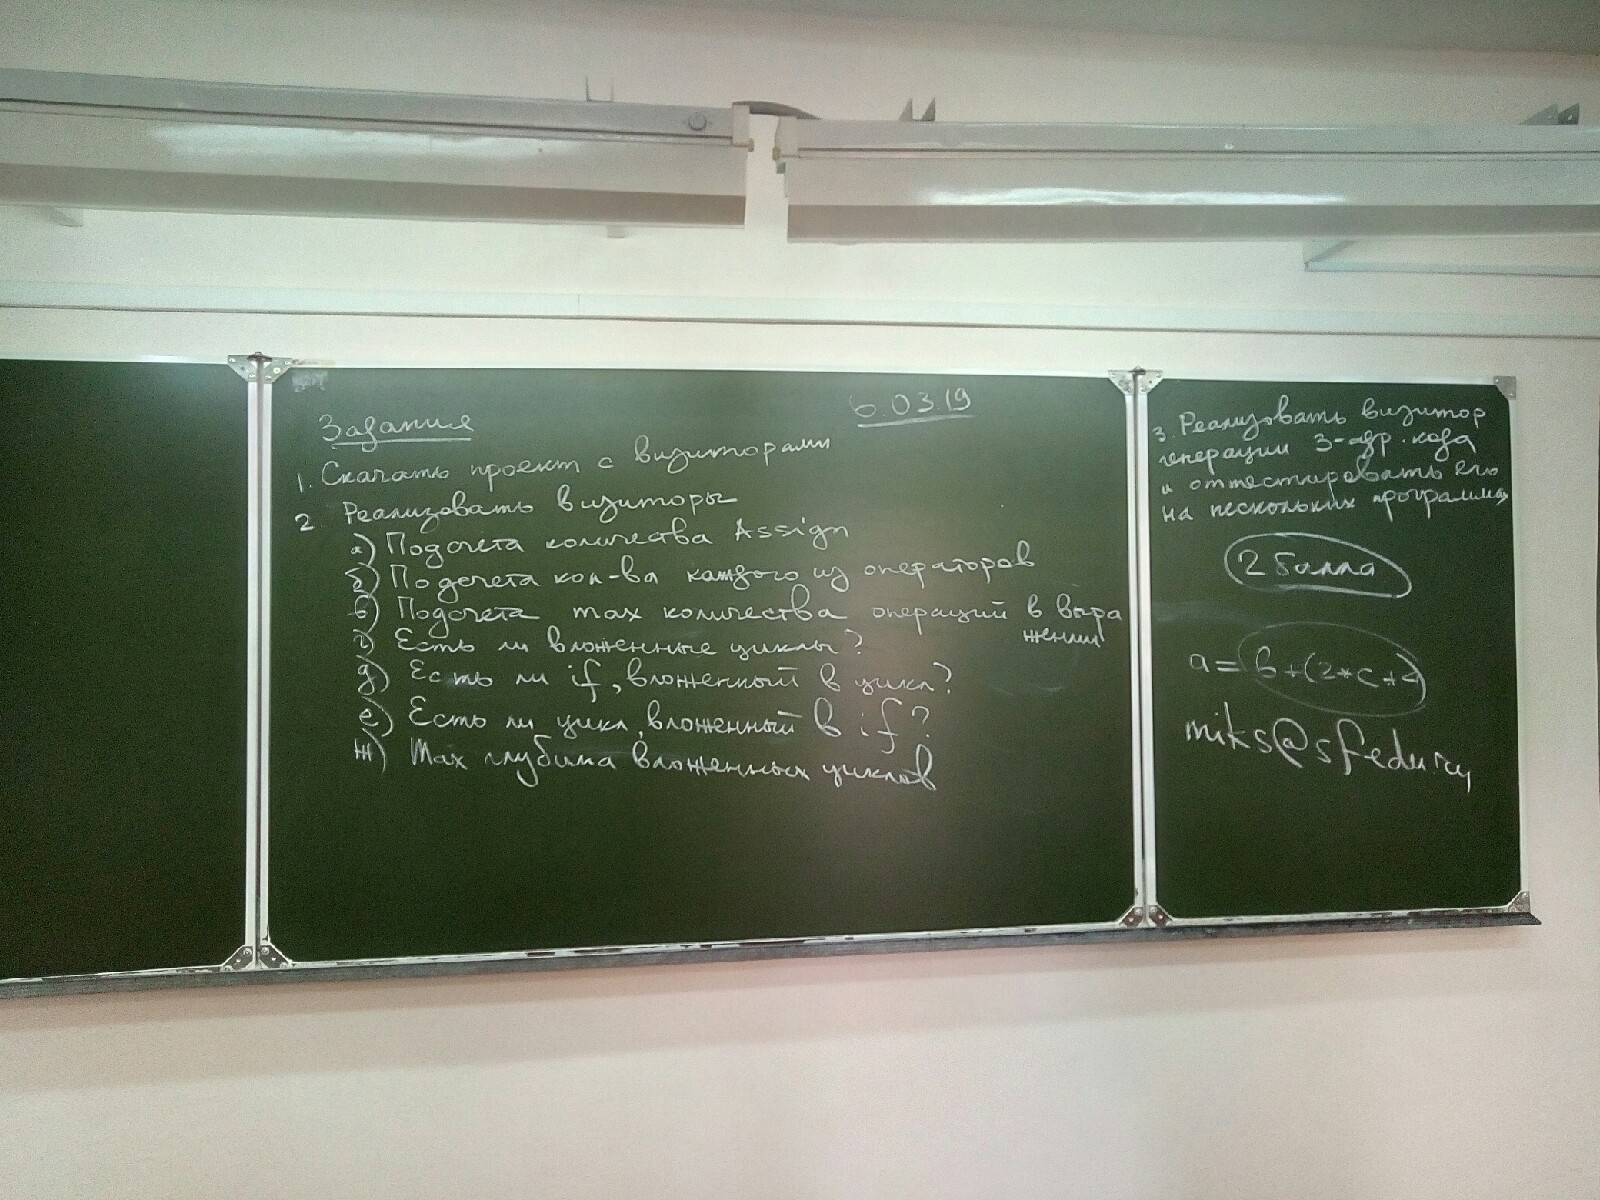 6.03.19
Задания
1. Скачать проект с визиторами
2 Реализовать визиторы
а) Подсчета количества Assign
б) Подсчета кол-ва каждого из операторов
в) Подсчета max количества операций в выра
жении
г) Есть ли вложенные циклы?
д) Есть ли if, вложенный в цикл?
е) Есть ли цикл, вложенный в if?
ж) Max глубина вложенных циклов
3. Реализовать визитор
генерации 3-адр. кода
и оттестировать его
на нескольких программах
2 балла
a = b+(2*c+
miks@sfedu.ru